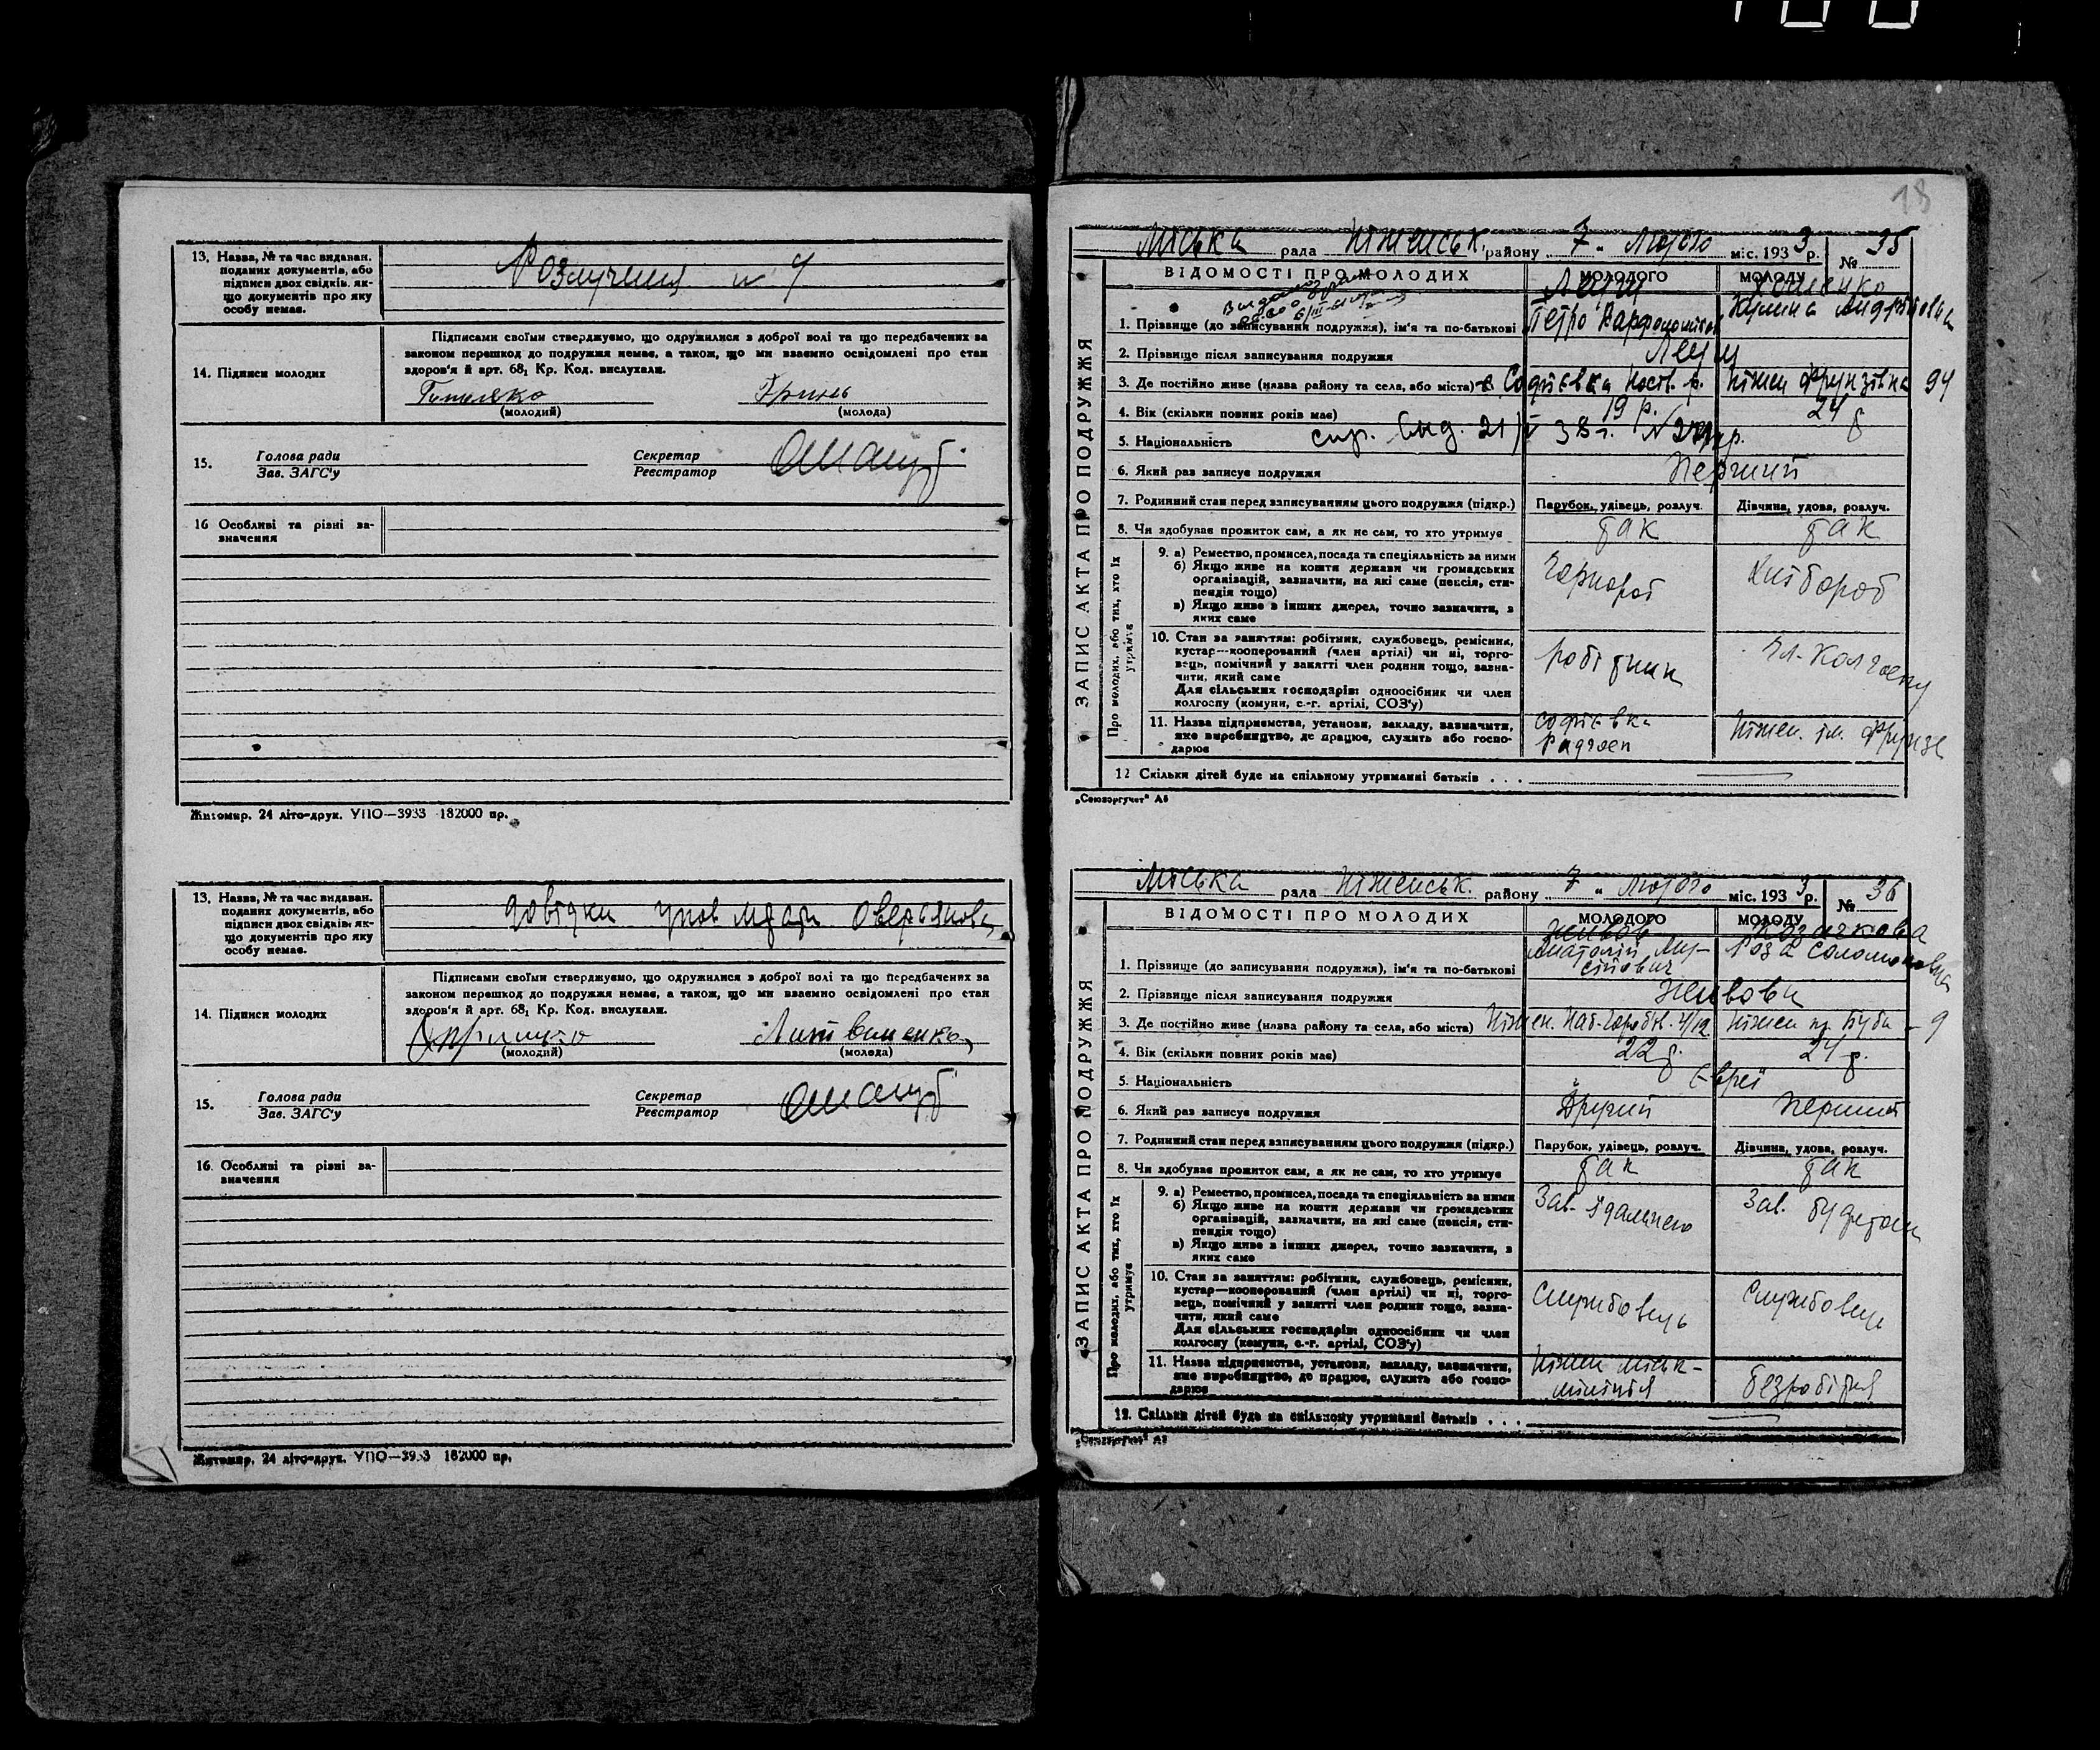 13. Назва, № та час видаван.
поданих документів, або
підписи двох свідків, як-
що документів про яку
особу немає.
Розлучения № 4
14. Підписи молодих
Підписами своїми стверджуємо, що одружилися з доброї волі та що передбачених за
законом перешкод до подружжя немає, а також, що ми взаємно освідомлені про стан
здоров'я й арт. 68₁ Кр. Код. вислухали.
Гринь
(молодий) (молода)
15. Голова ради
Зав. ЗАГС'у
Секретар
Реєстратор
16 Особливі та різні за-
значення
Житомир. 24 літо-друк. УПО—3933 182000 пр.
13. Назва, № та час видаван.
поданих документів, або
підписи двох свідків, як-
що документів про яку
особу немає.
довідки
14. Підписи молодих
Підписами своїми стверджуємо, що одружилися з доброї волі та що передбачених за
законом перешкод до подружжя немає, а також, що ми взаємно освідомлені про стан
здоров'я й арт. 68₁ Кр. Код. вислухали.
Литвиненко
(молодий) (молода)
15. Голова ради
Зав. ЗАГС'у
Секретар
Реєстратор
16. Особливі та різні за-
значення
Житомир. 24 літо-друк. УПО—3933 182000 пр.
18
Міська рада Ніженськ. району „ 7 „ Лютого міс. 1933 р. № 35
ЗАПИС АКТА ПРО ПОДРУЖЖЯ
ВІДОМОСТІ ПРО МОЛОДИХ МОЛОДОГО МОЛОДУ
1. Прізвище (до записування подружжя), ім'я та по-батькові Петро
2. Прізвище після записування подружжя
3. Де постійно живе (назва району та села, або міста) с. Софіївка Носів. р. Ніжен Фрунзівка 94
4. Вік (скільки повних років має) 19 р. 24 р
5. Національність укр.
6. Який раз записує подружжя Перший
7. Родинний стан перед записуванням цього подружжя (підкр.) Парубок, удівець, розлуч. Дівчина, удова, розлуч.
8. Чи здобуває прожиток сам, а як не сам, то хто утримує так так
Про молодих, або тих, хто їх утримує
9. а) Ремество, промисел, посада та спеціяльність за ними
б) Якщо живе на кошти держави чи громадських
організацій, зазначити, на які саме (пенсія, сти-
пендія тощо)
в) Якщо живе з інших джерел, точно зазначити, з
яких саме
Чорнороб Хлібороб
10. Стан за заняттям: робітник, службовець, ремісник,
кустар—кооперований (член артілі) чи ні, торго-
вець, помічний у занятті член родини тощо, зазна-
чити, який саме
Для сільських господарів: одноосібник чи член
колгоспу (комуни, с.-г. артілі, СОЗ'у)
Робітник Чл. Колгоспу
11. Назва підприємства, установи, закладу, зазначити,
яке виробництво, де працює, служить або госпо-
дарює
Софіївка
Радгосп
Ніжен. ім. Фрунзе
12 Скільки дітей буде на спільному утриманні батьків . . .
„Союзоргучет" А5
Міська рада Ніженськ. району „ 7 „ Лютого міс. 1933 р. № 36
ЗАПИС АКТА ПРО ПОДРУЖЖЯ
ВІДОМОСТІ ПРО МОЛОДИХ МОЛОДОГО МОЛОДУ
1. Прізвище (до записування подружжя), ім'я та по-батькові Анатолій Роза Соломоновна
2. Прізвище після записування подружжя
3. Де постійно живе (назва району та села, або міста) Ніжен. Ніжен
4. Вік (скільки повних років має) 22 р. 24 р.
5. Національність Євреї
6. Який раз записує подружжя Другий Перший
7. Родинний стан перед записуванням цього подружжя (підкр.) Парубок, удівець, розлуч. Дівчина, удова, розлуч.
8. Чи здобуває прожиток сам, а як не сам, то хто утримує так так
Про молодих, або тих, хто їх утримує
9. а) Ремество, промисел, посада та спеціяльність за ними
б) Якщо живе на кошти держави чи громадських
організацій, зазначити, на які саме (пенсія, сти-
пендія тощо)
в) Якщо живе з інших джерел, точно зазначити, з
яких саме
Зав. їдальнею Зав. буфетом
10. Стан за заняттям: робітник, службовець, ремісник,
кустар—кооперований (член артілі) чи ні, торго-
вець, помічний у занятті член родини тощо, зазна-
чити, який саме
Для сільських господарів: одноосібник чи член
колгоспу (комуни, с.-г. артілі, СОЗ'у)
Службовець Службовець
11. Назва підприємства, установи, закладу, зазначити,
яке виробництво, де працює, служить або госпо-
дарює
Ніжен міськ-
міліція
безробітня
12. Скільки дітей буде на спільному утриманні батьків . . .